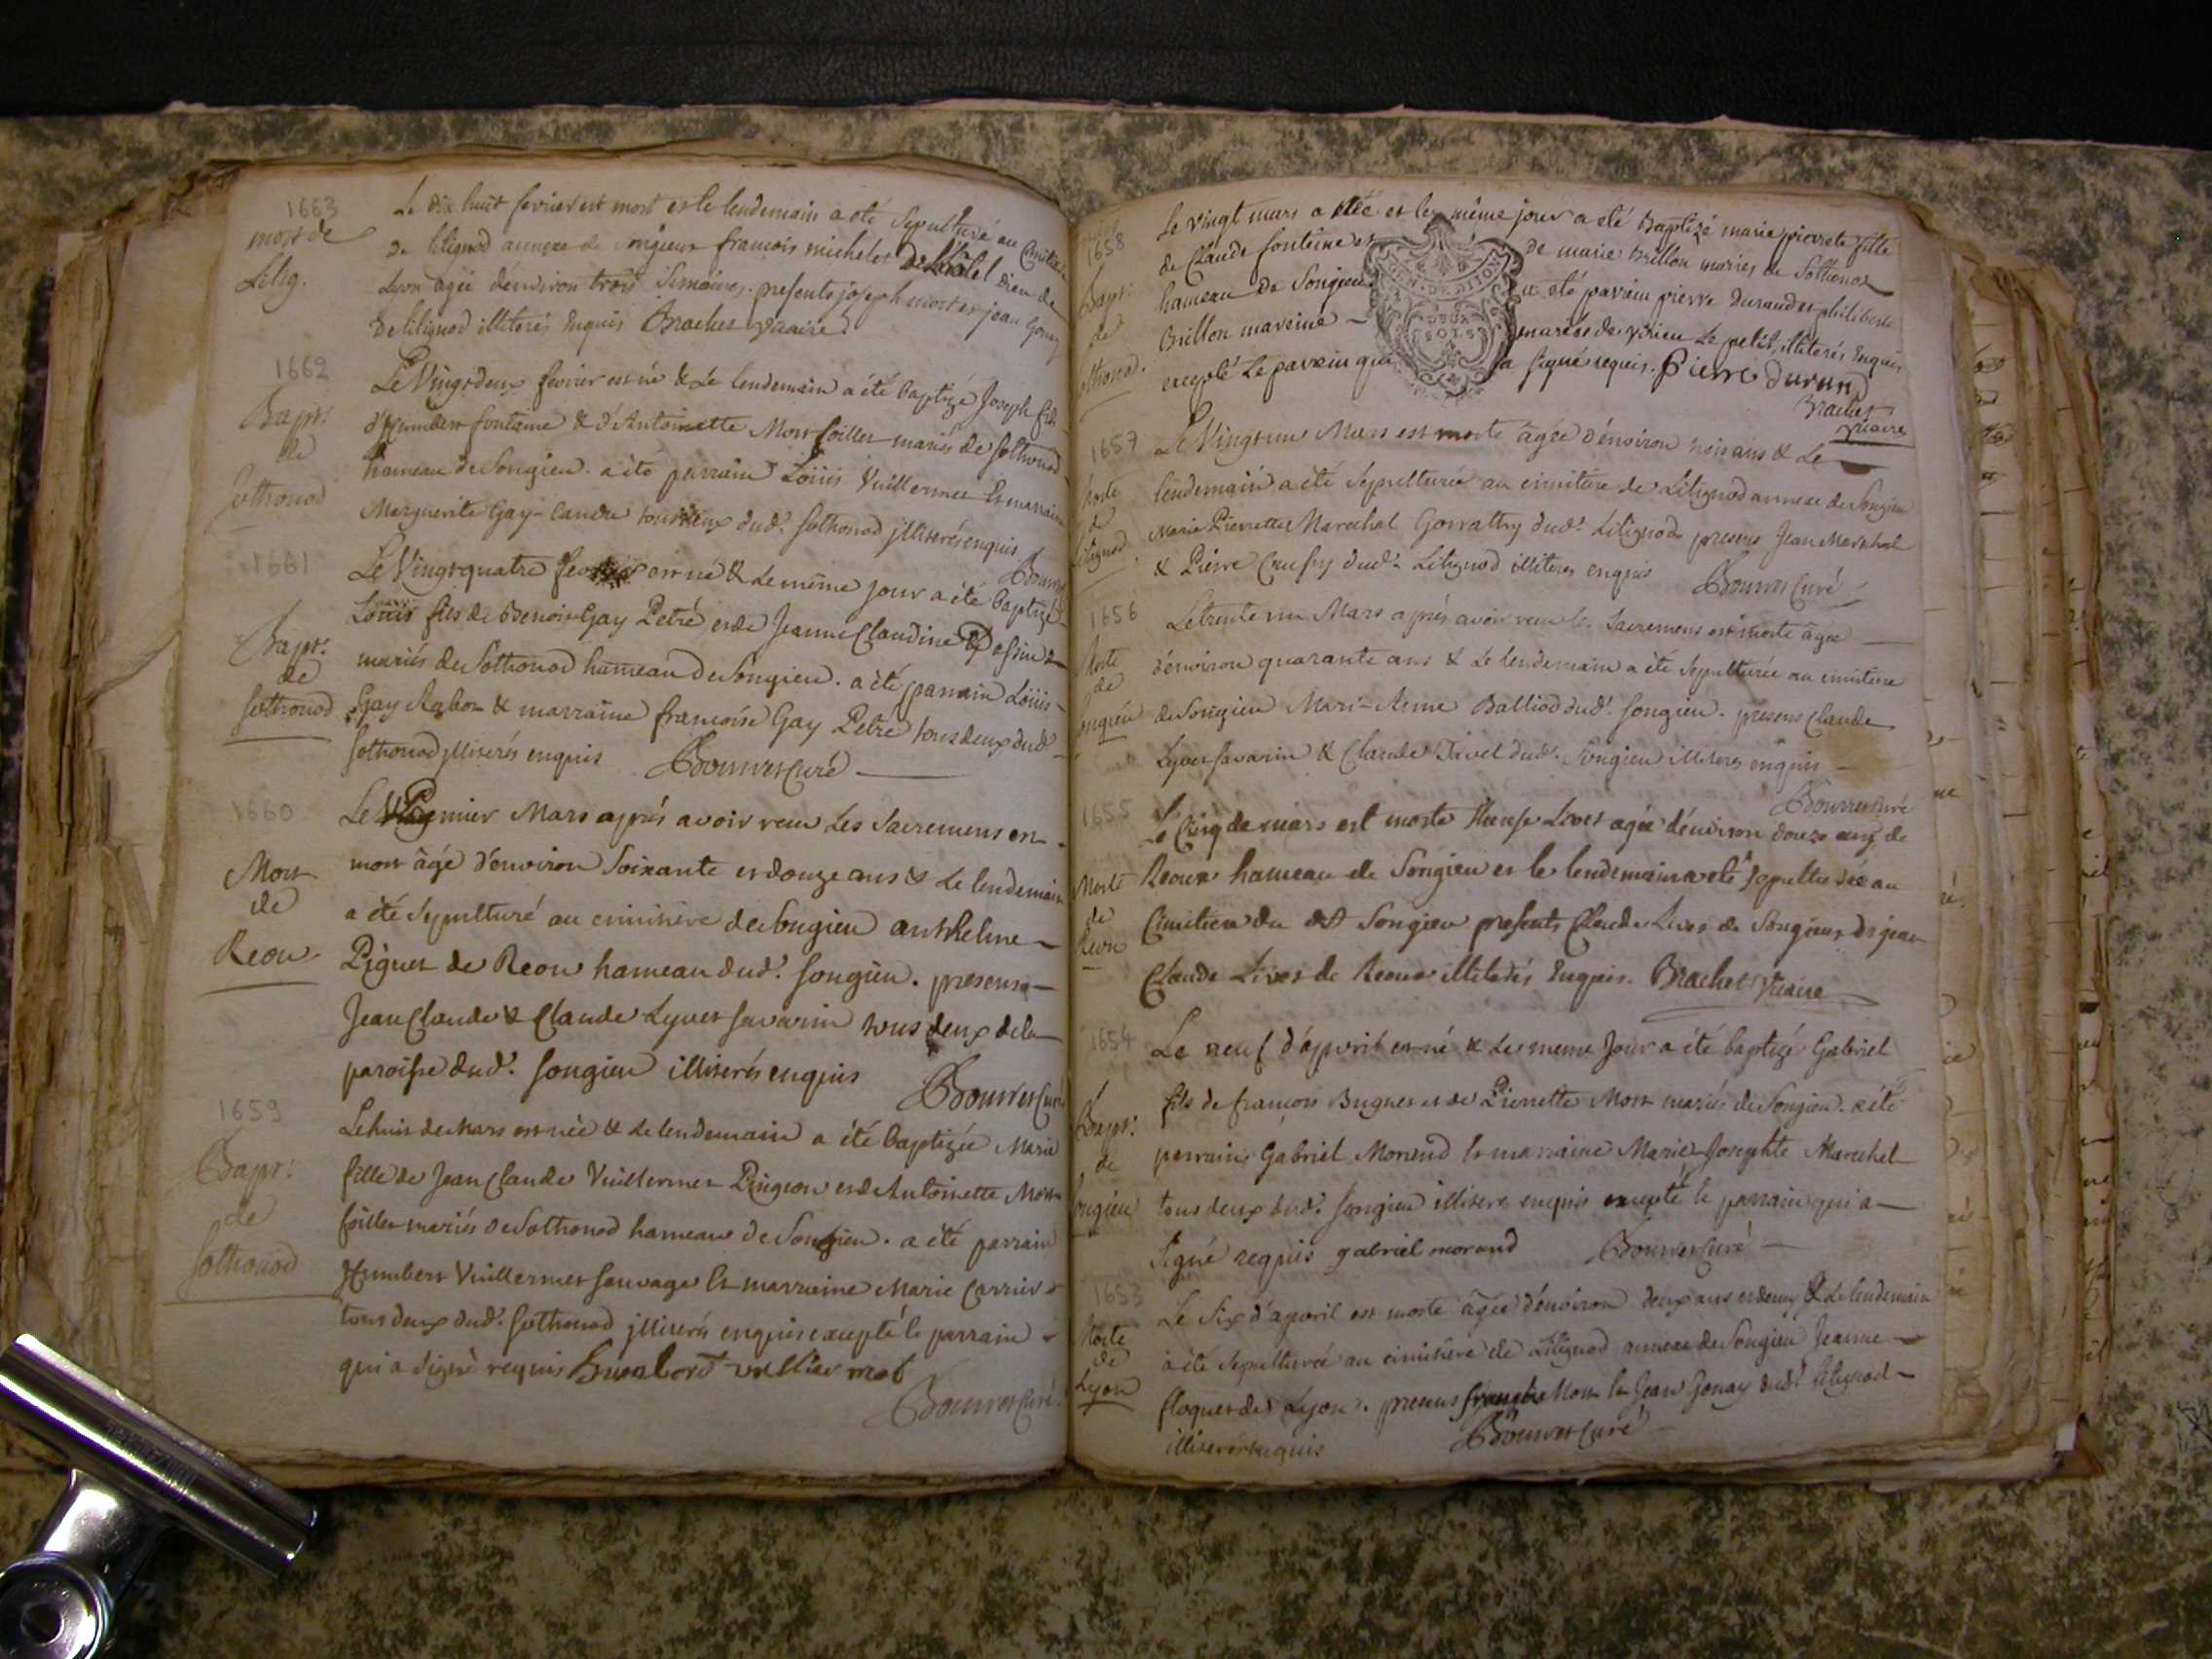 1663
mort de
Litig.
Le dix huit fevrier est mort et le lendemain a été sepulturé au Cimitiere
de litignod annexe de songieux francois michelet de l'hotel dieu de
Lion agée d'environ trois semaines. presents joseph mort et jean Gonay
de litignod illiterés enquis Brachet vicaire
1662
Bapt:
de
Sothonod
Le Vingt deux fevrier est né & Le lendemain a été baptizé Joseph fils
d'Humbert fontaine & d'Antoinette Mort foillet mariés de Sothonod
hameau de Songieu. a été parrain Loüis Vuillermet Et marraine
Marguerite Gay-Candre tous deux dud.t Sothonod jlliterés enquis
Bouvet
1661
Bapt:
de
Sothonod
Le Vingt quatre fevrier est né & Le même jour a été baptizé
Loüis fils de Benoit Gay Petré et de Jeanne Claudine
mariés de Sothonod hameau de Songieu. a été parrain Loüis
Gay & marraine francoise Gay Petré tous deux dud.t
Sothonod jlliterés enquis Bouvet Curé
1660
Mort
de
Reou
Le Premier Mars aprés avoir reçu Les Sacremens est
mort âgé d'environ Soixante et douze ans & Le lendemain
a été Sepulturé au cimitière de Songieu anthelme
Piguet de Reou hameau dud.t Songieu. presens
Jean Claude & Claude Lyvet Savarin tous deux de la
paroisse dud.t Songieu illiterés enquis
Bouvet Curé
1659
Bapt:
de
Sothonod
Le huit de Mars est née & Le lendemain a été baptizée Marie
fille de Jean Claude Vuillermet Pingeon et de Antoinette Mort
foillet mariés de Sothonod hameau de Songieu. a été parrain
Humbert Vuillermet Sauvage Et marraine Marie Carrier
tous deux dud.t Sothonod jlliterés enquis excepté le parrain
qui a signé requis
Bouvet Curé
1658
Bapt:
de
Sothonod.
Le vingt mars a été et le même jour a été Baptizé marie pierrete fille
de Claude fonteine et de marie Brillon mariés de Sothonod
hameau de Songieu a été parrein pierre Durand et philiberte
Brillon mareine mariés de virieu Le petit, illiterés Enquis
excepté Le parrein qui a signé requis. Pierre duran
Brachet
vicaire
GEN. DE DIJON
DEUX
SOLS
1657
Morte
de
Litignod
Le Vingt un Mars est morte âgée d'environ trois ans & Le
lendemain a été Sepulturée au cimitiere de Litignod annexe de Songieu
Marie Pierrette Marechal dud.t Litignod presens Jean Marechal
& Pierre dud.t Litignod illiteres enquis Bouvet Curé
1656
Morte
de
Songieu
Le trente un Mars aprés avoir reçu les Sacremens est morte âgée
d'environ quarante ans & Le lendemain a été Sepulturée au cimitiere
de Songieu Mari-Anne Balliod dud.t Songieu. presens Claude
Lyvet Savarin & Claude Tivel dud.t Songieu illiteres enquis
Bouvet Curé
1655
Morte
de
Reou
Le Cinq de mars est morte Livet agée d'environ douze ans de
Reoux hameau de Songieu et le lendemain a été sepulturée au
Cimitiere du dit Songieu presents Claude Livet de Songieu et jean
Claude Livet de Reoux illiterés Enquis. Brachet Vicaire
1654
Bapt:
de
Songieu
Le neuf d'apvril est né & Le meme Jour a été baptizé Gabriel
fils de francois Buguet et de Pierrette Mort mariés de Songieu. a été
parrain Gabriel Morand Et marraine Marie Josephte Marechal
tous deux dud.t Songieu illiteres enquis excepté le parrain qui a
Signé requis gabriel morand Bouvet Curé
1653
Morte
de
Lyon
Le Six d'apvril est morte âgée d'environ deux ans et demy & Le lendemain
a été Sepulturée au cimitière de Litignod annexe de Songieu Jeanne
floquet de Lyon. presens Mort Et Jean Gonay dud.t Litignod
illiterés enquis Bouvet Curé